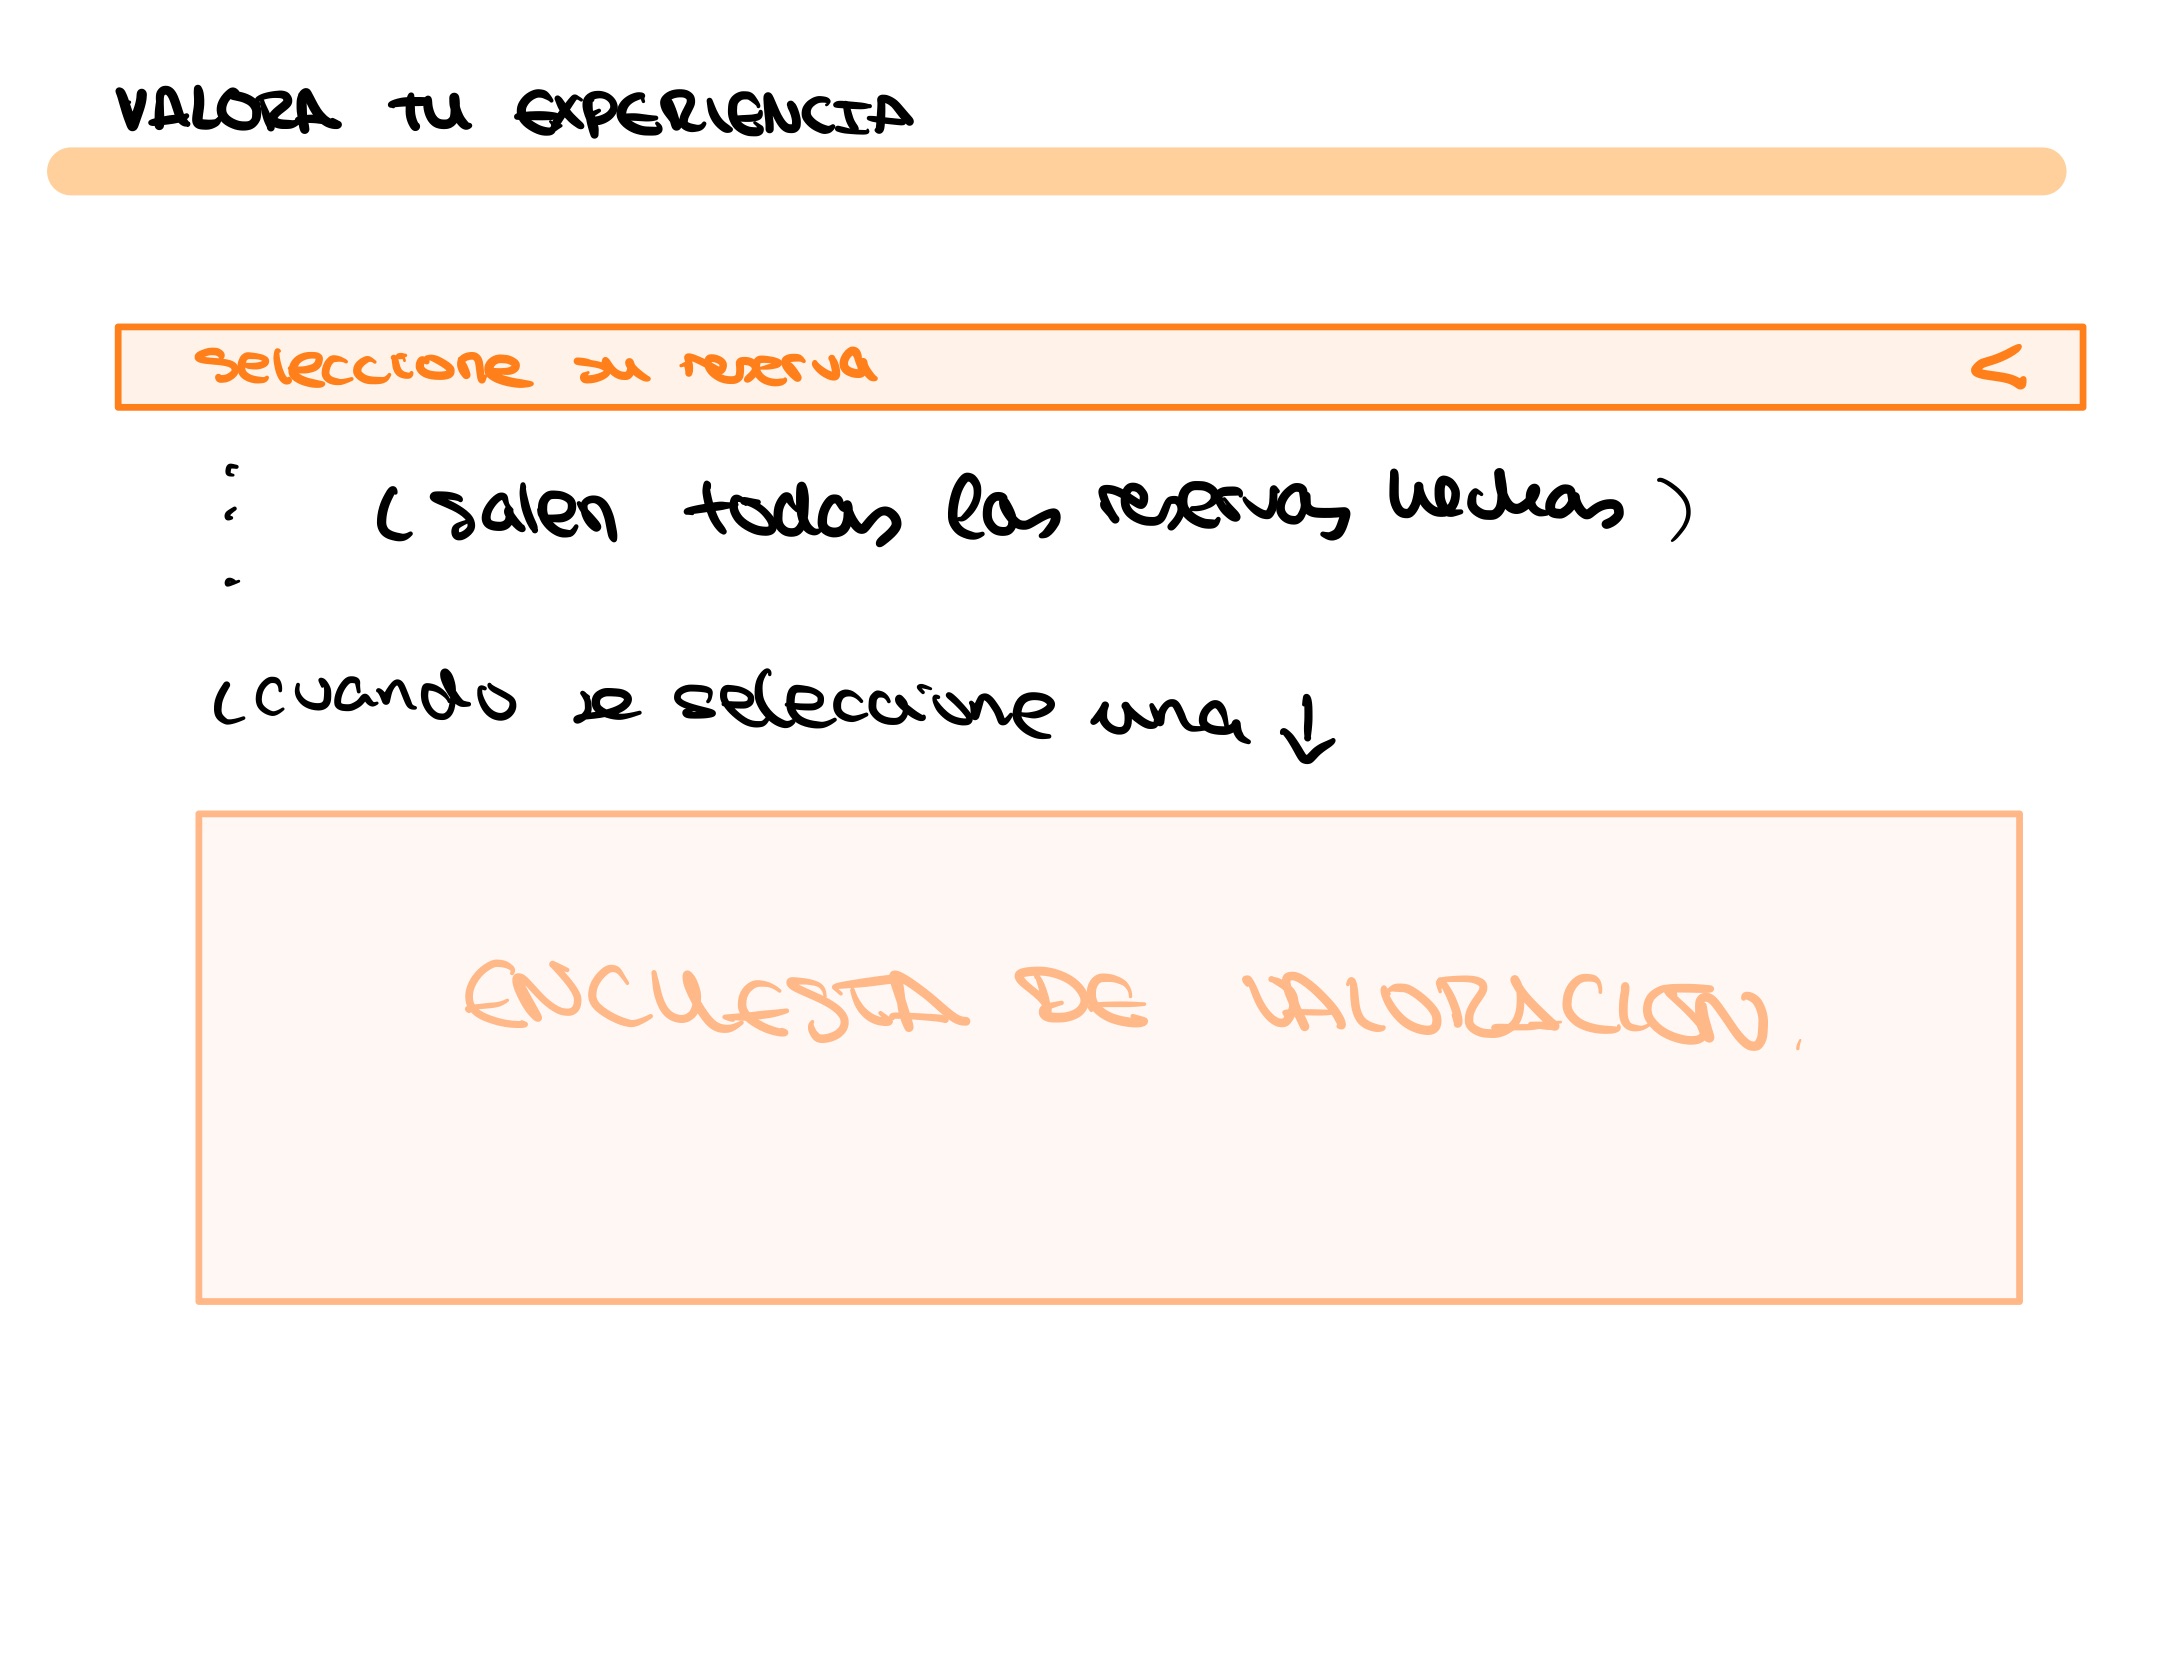 VALORA TU EXPERIENCIA
Seleccione su reserva
(salen todas las reservas hechas)
(cuando se seleccione una ↓
ENCUESTA DE VALORACION.